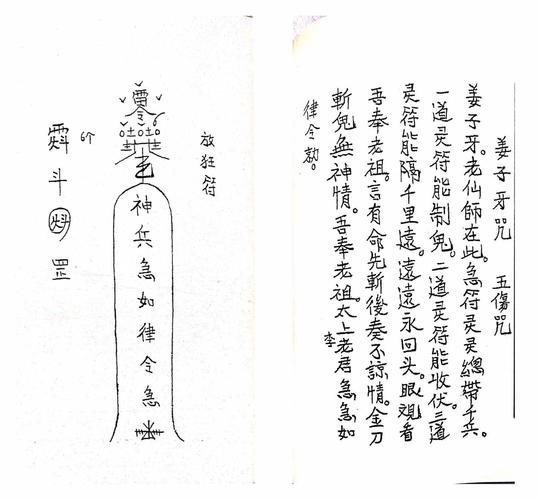 姜子牙咒　五傷咒
姜子牙。老仙師在此。急符灵灵總帶千兵。
一道灵符能制鬼。二道灵符能收伏。三道
灵符能隔千里遠。遠遠永回头。眼观看
吾奉老祖。言有命先斬後奏不諒情。金刀
斬鬼無神情。吾奉老祖。太上李老君急急如
律令勅。
放狂符
神兵急如律令急
斗
罡